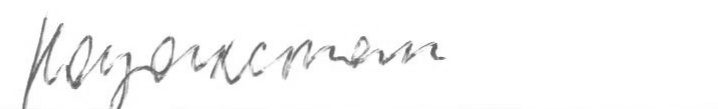 Казахстан